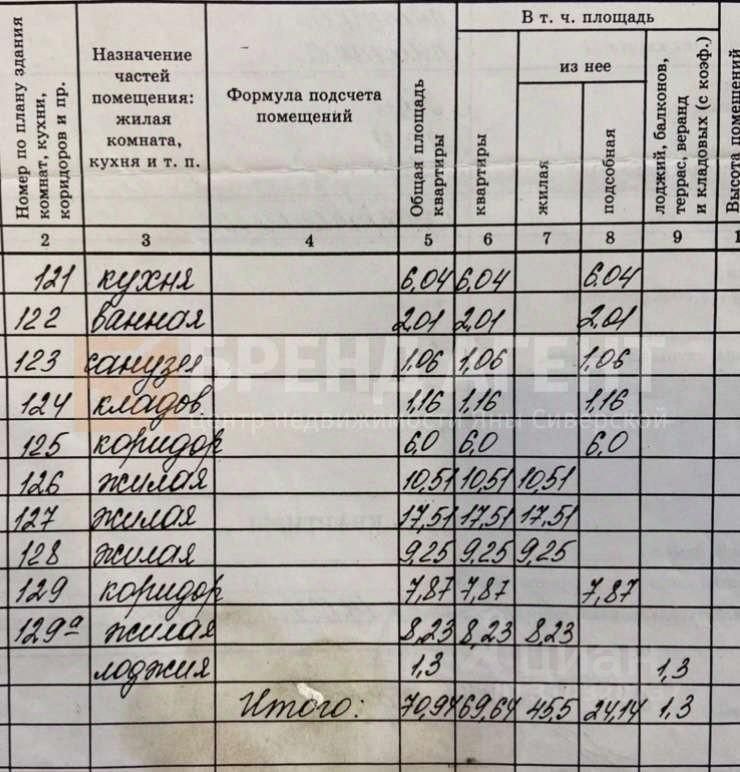 В т. ч. площадь
из нее
Номер по плану здания
комнат, кухни,
коридоров и пр.
Назначение
частей
помещения:
жилая
комната,
кухня и т. п.
Формула подсчета
помещений
Общая площадь
квартиры
квартиры
жилая
подсобная
лоджий, балконов,
террас, веранд
и кладовых (с коэф.)
Высота помещений
2 3 4 5 6 7 8 9 1
121 кухня 6,04 6,04 6.04
122 ванная 2,01 2,01 2,01
123 санузел 1,06 1,06 1,06
БРЕНД АГЕНТ
124 кладов. 1,16 1,16 1,16
Центр недвижимости Яны Сиверской
125 коридор 6,0 6,0 6,0
126 жилая 10,51 10,51 10,51
127 жилая 17,51 17,51 17,51
128 жилая 9,25 9,25 9,25
129 коридор 7,87 7,87 7,87
129а жилая 8,23 8,23 8,23
лоджия 1,3 1,3
Циан
Итого: 70,94 69,64 45,5 24,14 1,3